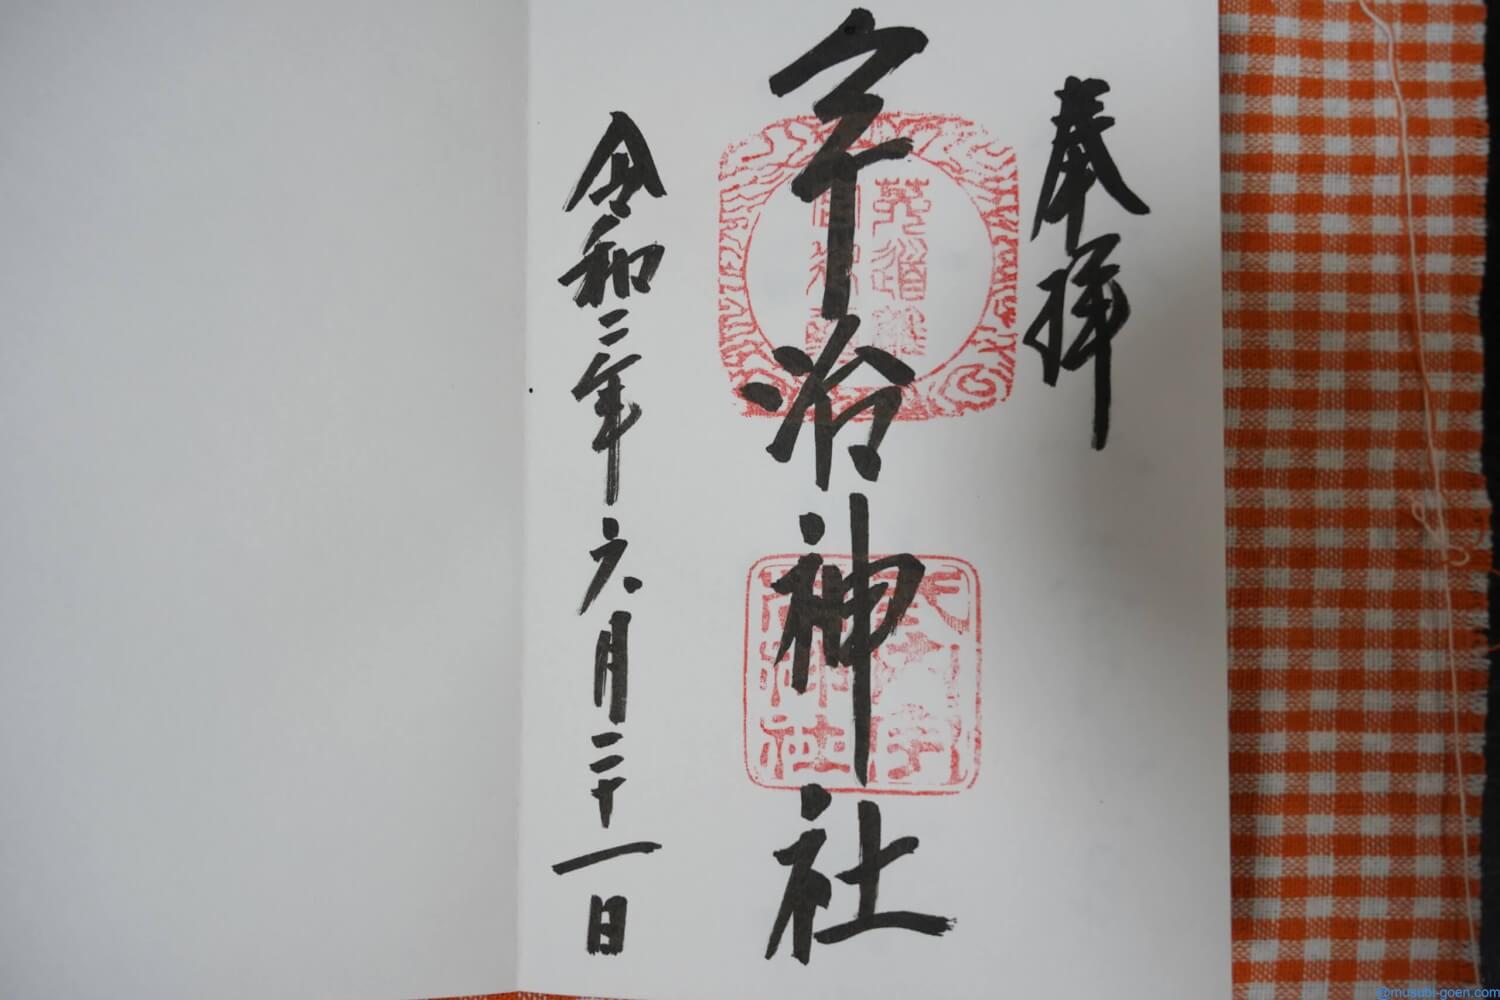 奉拝
宇治神社
令和二年六月二十一日
@musubi-goen.com